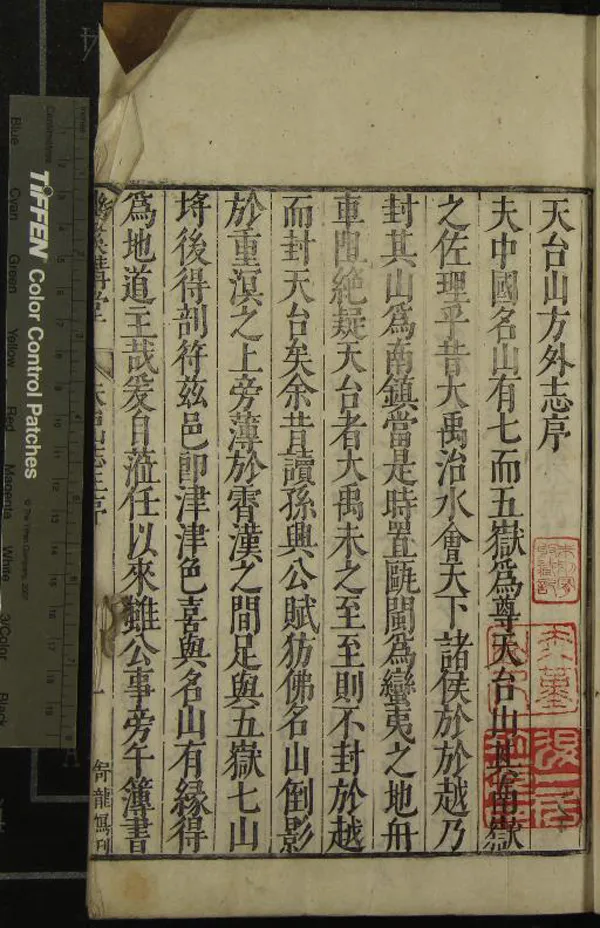 天台山方外志序
夫中國名山有七而五嶽為尊天台山其南嶽
之佐理乎昔大禹治水會天下諸侯於於越乃
封其山為南鎮當是時置甌閩為蠻夷之地舟
車阻絕疑天台者大禹未之至至則不封於越
而封天台矣余昔讀孫興公賦彷佛名山倒影
於重溟之上旁薄於霄漢之間足與五嶽七山
埒後得剖符茲邑即津津色喜與名山有緣得
為地道主哉爰自蒞任以來雖公事旁午簿書
幽溪講堂
一
龍寫刊
TIFFEN Color Control Patches
© The Tiffen Company, 2007
Blue Cyan Green Yellow Red Magenta White 3/Color Black
Centimetres